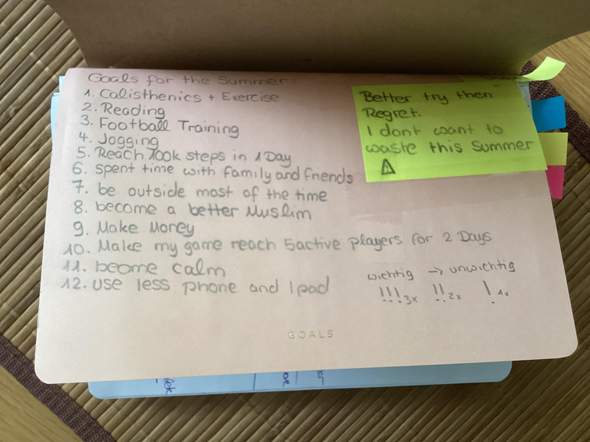 Goals for the Summer:
1. Calisthenics + Exercise
2. Reading
3. Football Training
4. Jogging
5. Reach 100k steps in 1 Day
6. spent time with family and friends
7. be outside most of the time
8. become a better Muslim
9. Make Money
10. Make my game reach 5active players for 2 Days
11. become calm
12. use less phone and Ipad
Better try then
Regret.
I dont want to
waste this Summer
!
wichtig → unwichtig
!!! 3x !! 2x ! 1x
GOALS